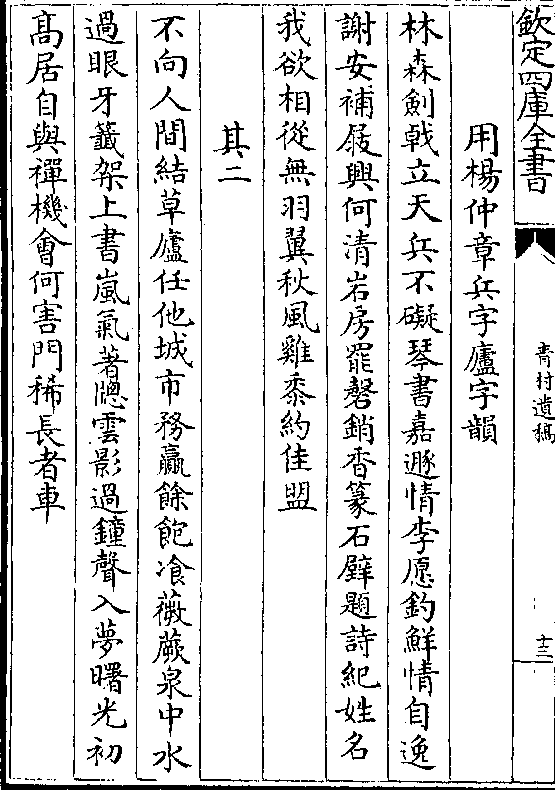 欽定四庫全書
青村遺稿
十三
用楊仲章兵字廬字韻
林森劍戟立天兵不礙琴書嘉遯情李愿釣鮮情自逸
謝安補屐興何清岩房罷磬銷香篆石壁題詩紀姓名
我欲相從無羽翼秋風雞黍約佳盟
其二
不向人間結草廬任他城市務贏餘飽飡薇蕨泉中水
過眼牙籤架上書嵐氣著牕雲影過鐘聲入夢曙光初
髙居自與禪機會何害門稀長者車